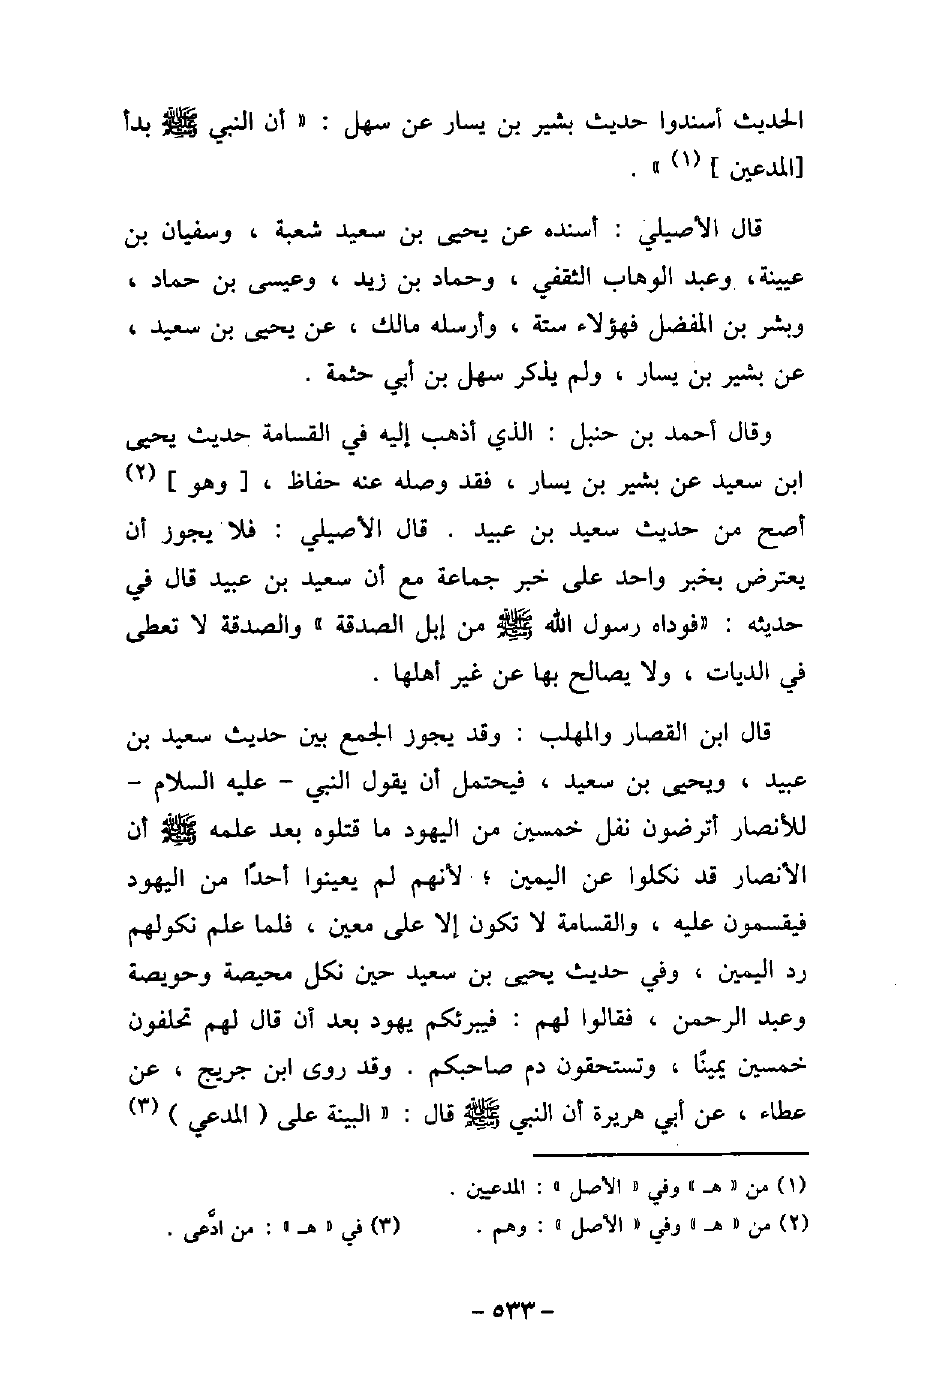 الحديث أسندوا حديث بشير بن يسار عن سهل : « أن النبي ﷺ بدأ
[المدعين ] (١) » .
قال الأصيلي : أسنده عن يحيى بن سعيد شعبة ، وسفيان بن
عيينة، وعبد الوهاب الثقفي ، وحماد بن زيد ، وعيسى بن حماد ،
وبشر بن المفضل فهؤلاء ستة ، وأرسله مالك ، عن يحيى بن سعيد ،
عن بشير بن يسار ، ولم يذكر سهل بن أبي حثمة .
وقال أحمد بن حنبل : الذي أذهب إليه في القسامة حديث يحيى
ابن سعيد عن بشير بن يسار ، فقد وصله عنه حفاظ ، [ وهو ] (٢)
أصح من حديث سعيد بن عبيد . قال الأصيلي : فلا يجوز أن
يعترض بخبر واحد على خبر جماعة مع أن سعيد بن عبيد قال في
حديثه : «فوداه رسول الله ﷺ من إبل الصدقة » والصدقة لا تعطى
في الديات ، ولا يصالح بها عن غير أهلها .
قال ابن القصار والمهلب : وقد يجوز الجمع بين حديث سعيد بن
عبيد ، ويحيى بن سعيد ، فيحتمل أن يقول النبي – عليه السلام –
للأنصار أترضون نفل خمسين من اليهود ما قتلوه بعد علمه ﷺ أن
الأنصار قد نكلوا عن اليمين ؛ لأنهم لم يعينوا أحدًا من اليهود
فيقسمون عليه ، والقسامة لا تكون إلا على معين ، فلما علم نكولهم
رد اليمين ، وفي حديث يحيى بن سعيد حين نكل محيصة وحويصة
وعبد الرحمن ، فقالوا لهم : فيبرئكم يهود بعد أن قال لهم تحلفون
خمسين يمينًا ، وتستحقون دم صاحبكم . وقد روى ابن جريج ، عن
عطاء ، عن أبي هريرة أن النبي ﷺ قال : « البينة على ( المدعي ) (٣)
(١) من « هـ » وفي « الأصل » : المدعيين .
(٢) من « هـ » وفي « الأصل » : وهم . (٣) في « هـ » : من ادَّعى .
– ٥٣٣ –